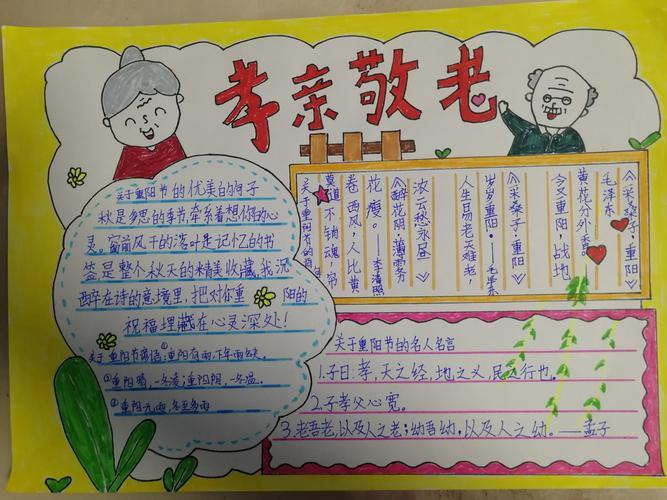 孝亲敬老
关于重阳节的优美的句子
秋是多思的季节,牵系着想你的心
灵。窗前风干的落叶是记忆的书
签,是整个秋天的精美收藏,我沉
醉在诗的意境里,把对你重 阳的
祝福埋藏在心灵深处!
关于重阳节谚语:①重阳有雨,下年雨
②重阳晴,一冬凌;重阳阴,一冬温。
③重阳无雨,冬至多雨
关于重阳有的
莫道不销魂,帘
卷西风,人比黄
花瘦。——李清照
《醉花阴·薄雾
浓云愁永昼》
人生易老天难老,
岁岁重阳。——毛泽东
《采桑子·重阳》
今又重阳,战地
黄花分外香。
毛泽东
《采桑子·重阳》
关于重阳节的名人名言
1.子曰:孝,天之经,地之义,民之行也。
2.子孝父心宽。
3.老吾老,以及人之老;幼吾幼,以及人之幼。——孟子